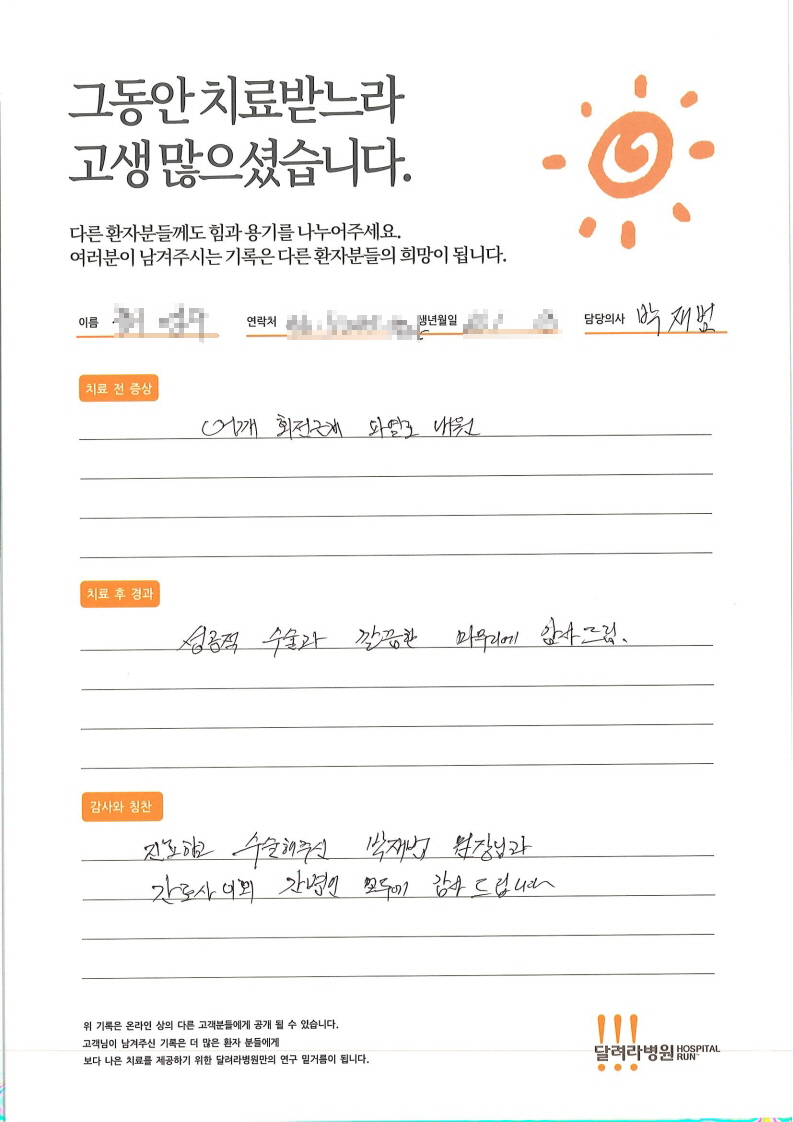 그동안 치료받느라
고생 많으셨습니다.
다른 환자분들께도 힘과 용기를 나누어주세요.
여러분이 남겨주시는 기록은 다른 환자분들의 희망이 됩니다.
이름 연락처 생년월일 담당의사 박재범
치료 전 증상
어깨 회전근개 파열로 내원
치료 후 경과
성공적 수술과 깔끔한 마무리에 감사드림.
감사와 칭찬
진료하고 수술해주신 박재범 원장님과
간호사 이외 간병인 모두에 감사드립니다
위 기록은 온라인 상의 다른 고객분들에게 공개 될 수 있습니다.
고객님이 남겨주신 기록은 더 많은 환자 분들에게
보다 나은 치료를 제공하기 위한 달려라병원만의 연구 밑거름이 됩니다.
!!!
달려라병원 HOSPITAL RUN